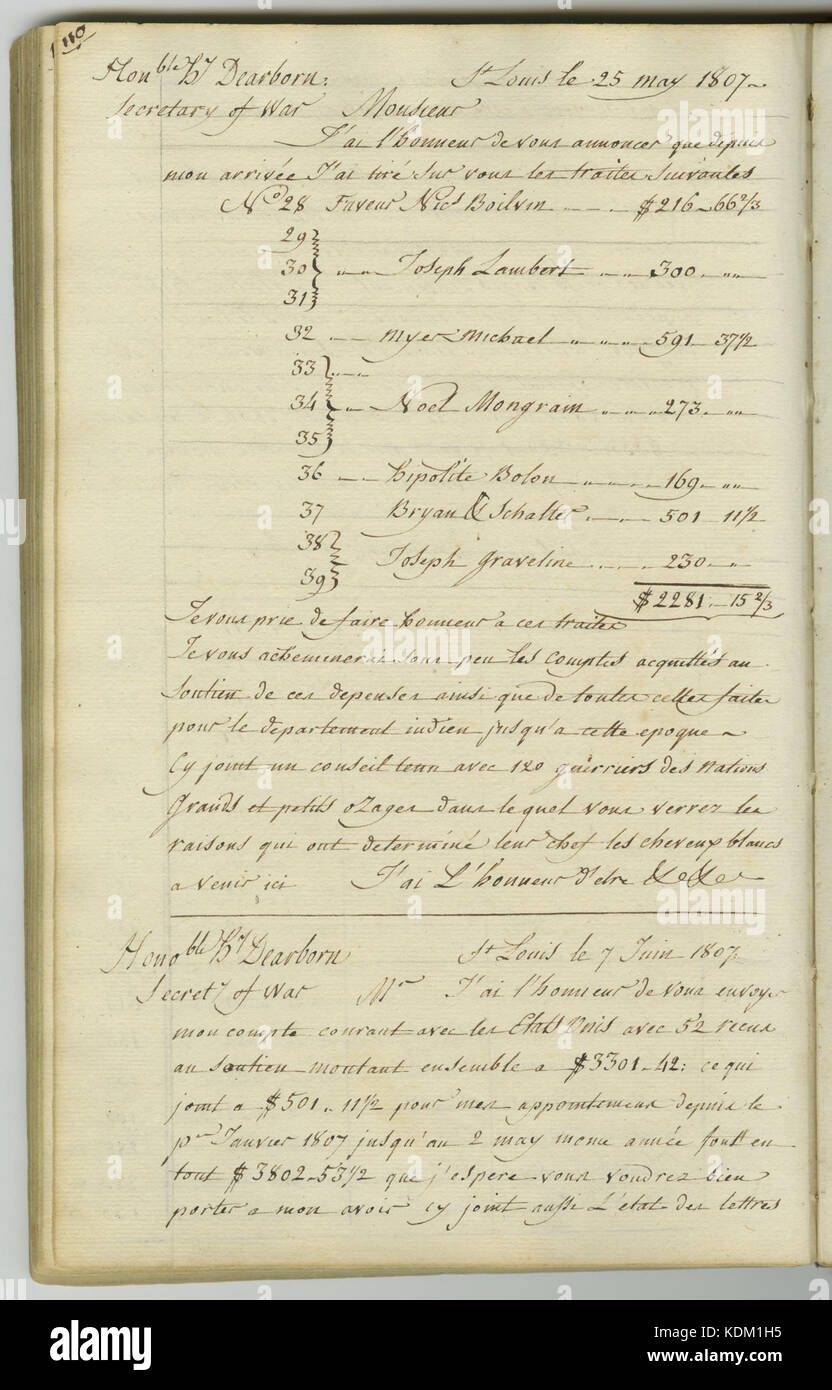 110
Honble hy Dearborn: St Louis le 25 may 1807
Secretary of War Monsieur
J'ai l'honneur de vous annoncer que depuis
mon arrivée J'ai tiré sur vous les traites suivantes
No 28 Faveur Nics Boilvin $216 66 2/3
29
30 " " Joseph Lambert " " 300 "
31
32 Myer Michael " " " " 591 37 1/2
33 " "
34 " Noel Mongrain " " " 273 "
35
36 Hipolite Bolon 169 "
37 Bryan & Schatter 501 11 1/2
38
Joseph Graveline 230 "
39
$2281 15 2/3
Je vous prie de faire honneur a ces traites
Je vous achemineraj sous peu les Comptes acquittés au
soutien de ces depenses ainsi que de toutes celles faites
pour le departement indien jusqu'a cette epoque
Cy joint un conseil tenu avec 120 guerriers des Nations
Grands et petits ozages dans le quel vous verrez les
raisons qui ont determiné leur chef les cheveux blancs
a venir ici J'ai L'honneur d'etre &c &c
Honoble hy Dearborn St Louis le 7 Juin 1807.
Secrety of War Mr J'ai l'honneur de vous envoyer
mon compte courant avec les Etats Unis avec 52 recus
au soutien montant ensemble a $3301 42: ce qui
joint a $501 11 1/2 pour mes appointemens depuis le
pr Janvier 1807 jusqu'au 2 may meme année font en
tout $3802 53 1/2 que j'espere vous voudrez bien
porter a mon avoir cy joint aussi L'etat des lettres
alamy
a
alamy stock photo
KDM1H5
www.alamy.com